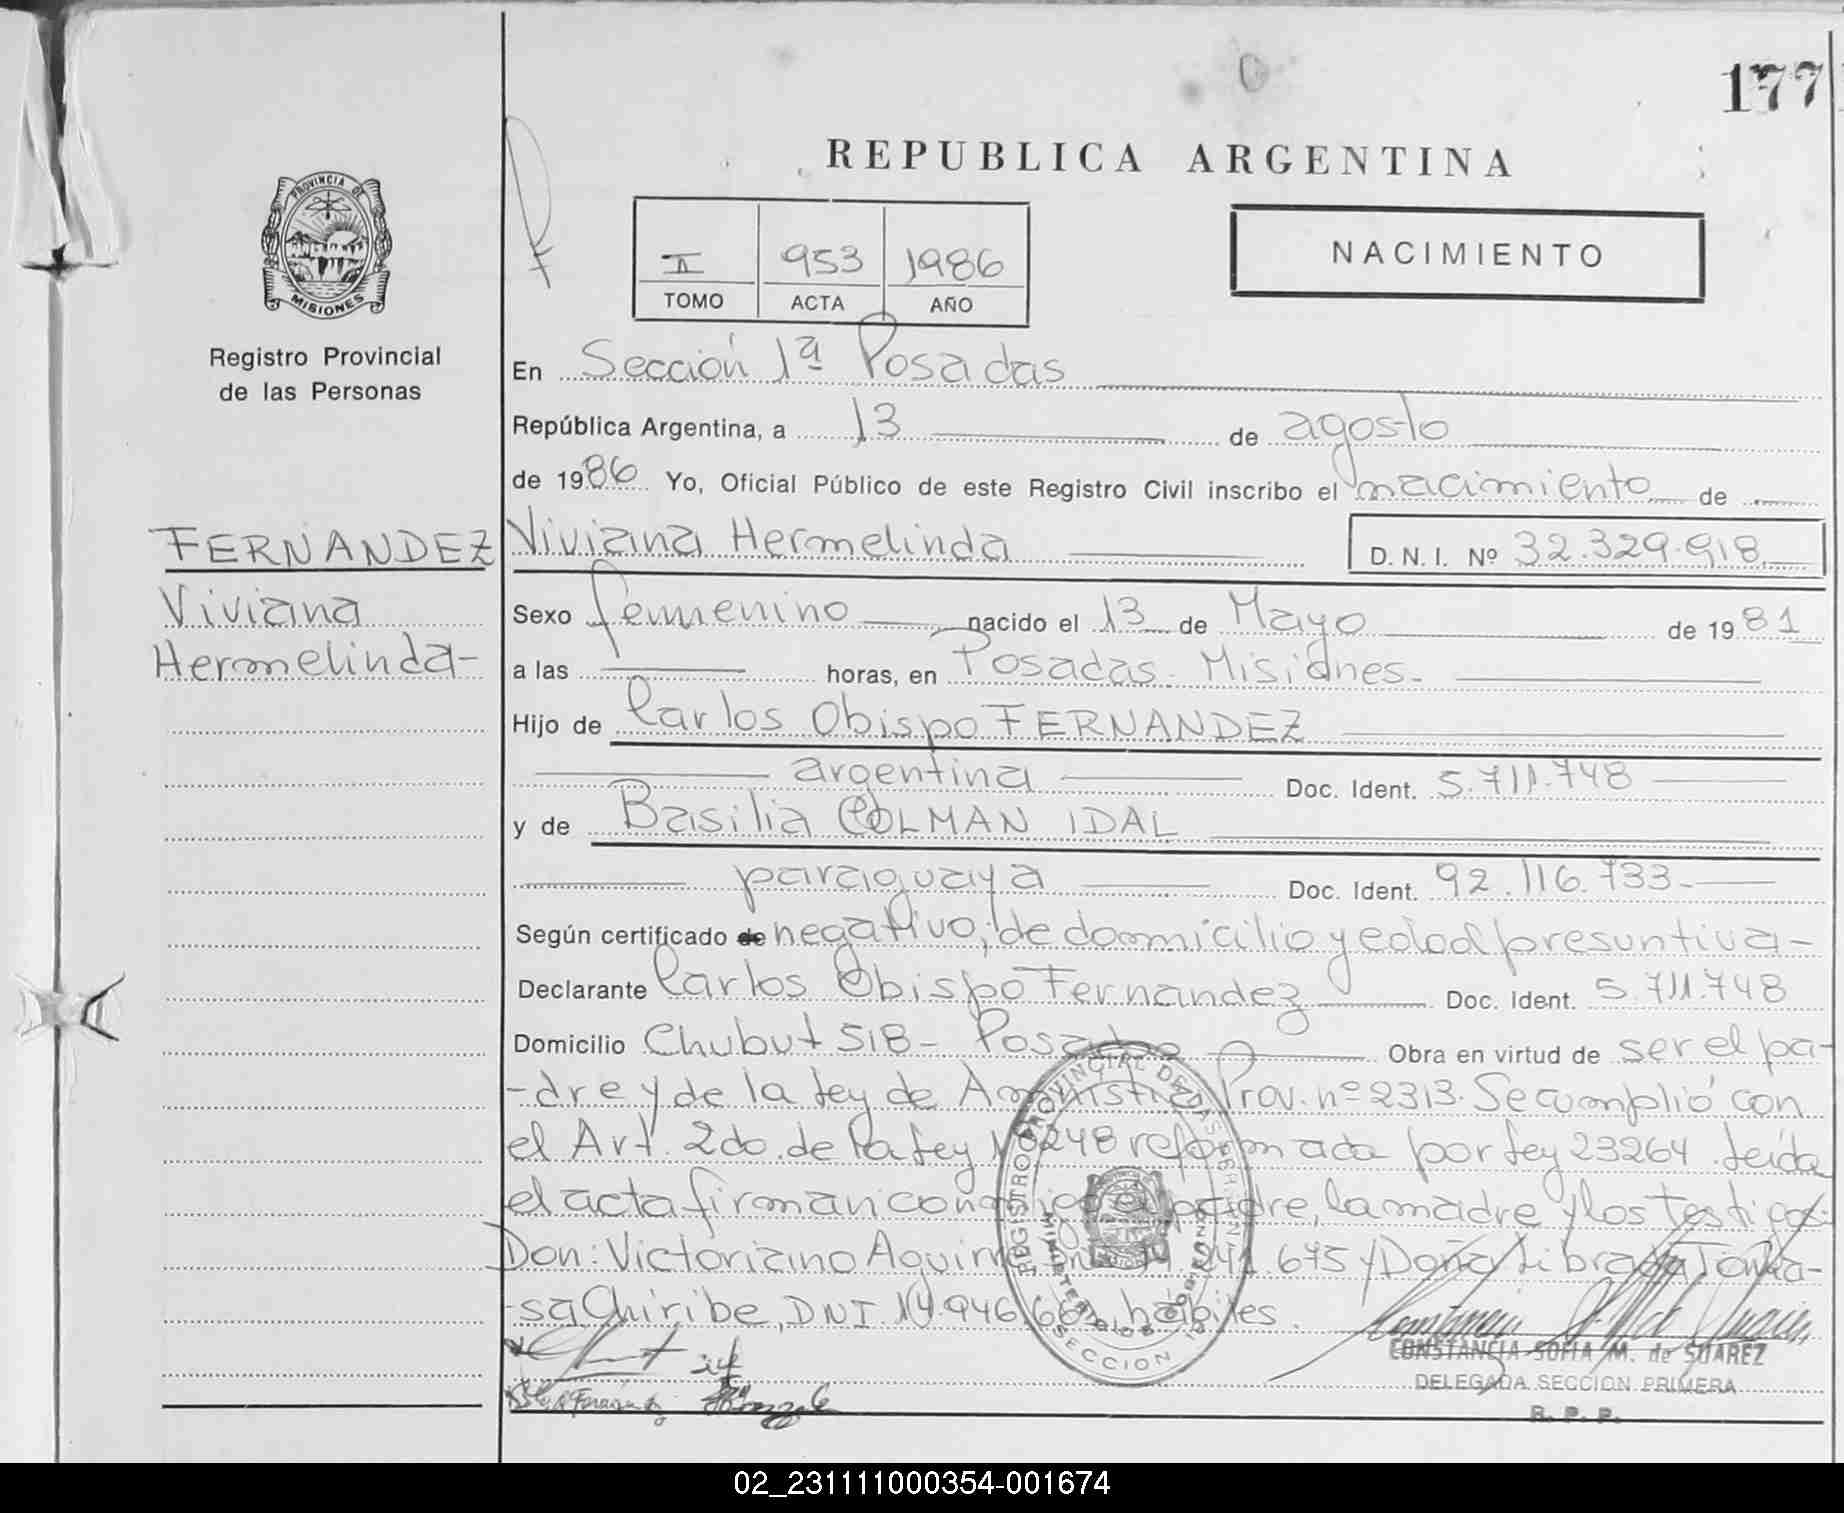 177
REPUBLICA ARGENTINA
PROVINCIA DE
MISIONES
Registro Provincial
de las Personas
II 953 1986
TOMO ACTA AÑO
NACIMIENTO
En Sección 1ª Posadas
República Argentina, a 13 de agosto
de 1986 Yo, Oficial Público de este Registro Civil inscribo el nacimiento de
FERNANDEZ
Viviana
Hermelinda-
Viviana Hermelinda D. N. I. Nº 32.329.918
Sexo femenino nacido el 13 de Mayo de 1981
a las horas, en Posadas- Misiones-
Hijo de Carlos Obispo FERNANDEZ
argentina Doc. Ident. 5.711.748
y de Basilia COLMAN IDAL
paraguaya Doc. Ident. 92.116.733-
Según certificado de negativo, de domicilio y edad presuntiva-
Declarante Carlos Obispo Fernandez Doc. Ident. 5.711.748
Domicilio Chubut 518- Posadas Obra en virtud de ser el pa-
-dre y de la Ley de Amnistia Prov. nº 2313. Se cumplió con
el Art. 2do. de la Ley 18248 reformada por Ley 23264. Leída
el acta firman conmigo el padre, la madre y los testigos:
Don: Victoriano Aquino 241.675 y Doña Librada Toma-
-sa Chiribe, DNI 14.946.66 hábiles.
REGISTRO PROVINCIAL DE LAS PERSONAS
MINISTERIO DE GOBIERNO
SECCION 1ª
CONSTANCIA SOFIA M. de SUAREZ
DELEGADA SECCION PRIMERA
R. P. P.
02_231111000354-001674